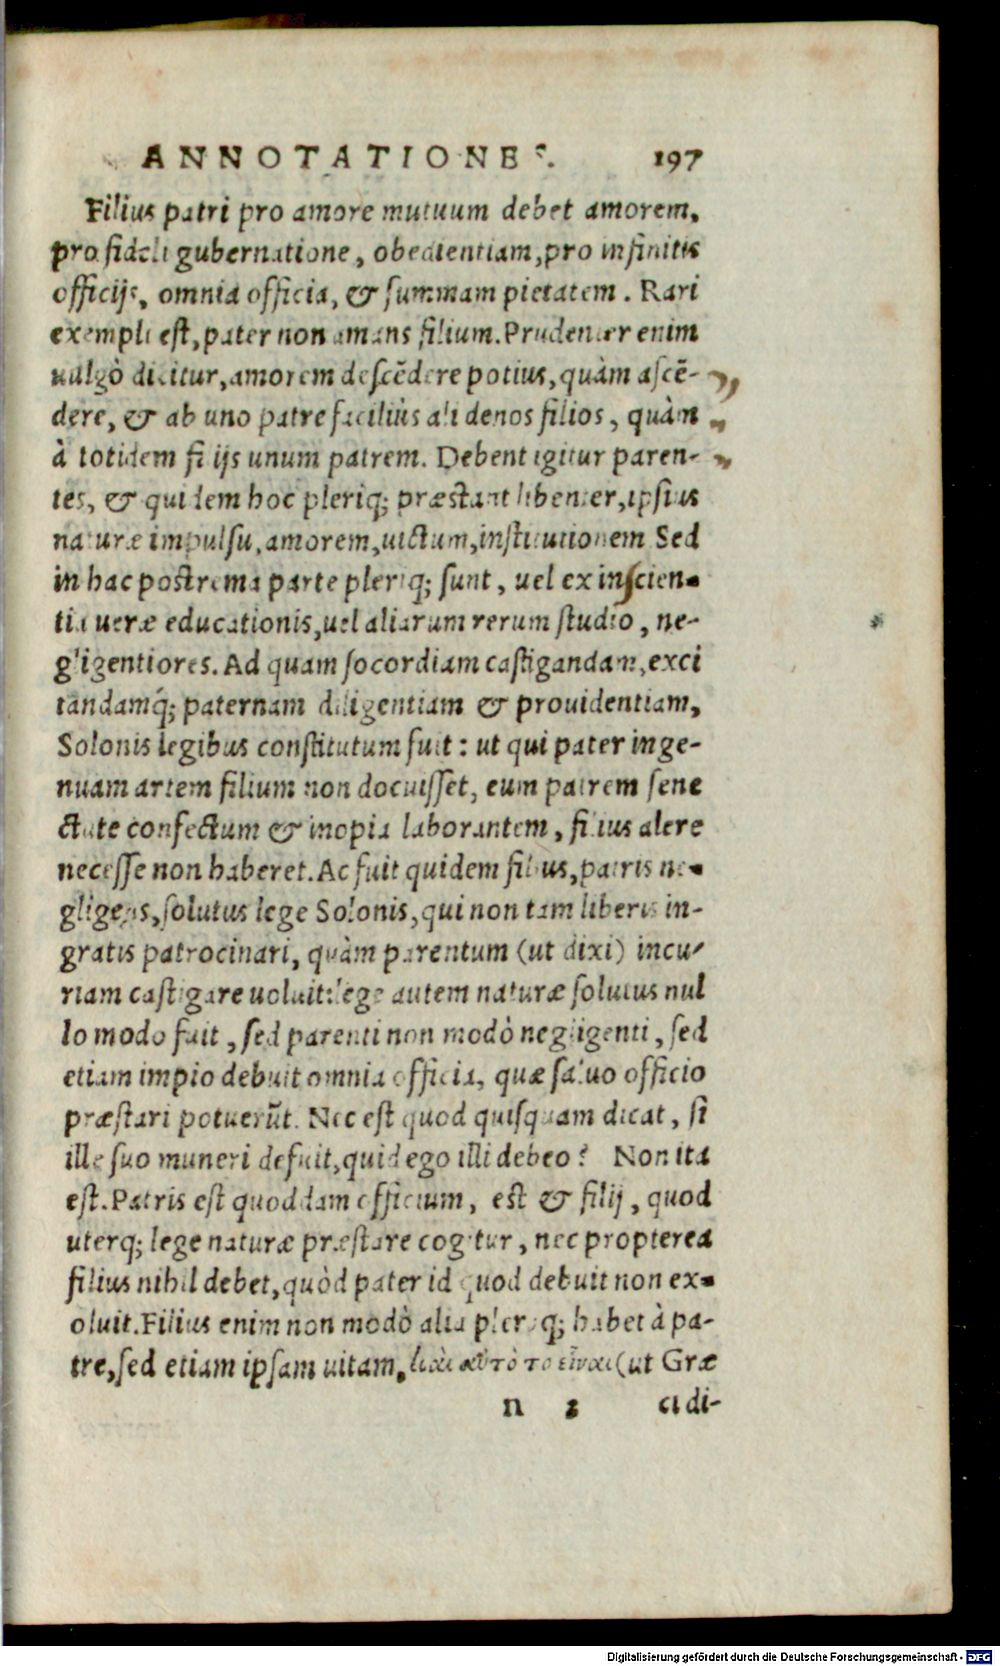 ANNOTATIONES. 197
Filius patri pro amore mutuum debet amorem,
pro fideli gubernatione, obedientiam, pro infinitis
officijs, omnia officia, & summam pietatem. Rari
exempli est, pater non amans filium. Prudenter enim
uulgò dicitur, amorem descēdere potius, quàm ascē-
dere, & ab uno patre faciliùs ali denos filios, quàm
à totidem filijs unum patrem. Debent igitur paren-
tes, & quidem hoc pleriq; præstant libenter, ipsius
naturæ impulsu, amorem, uictum, institutionem Sed
in hac postrema parte pleriq; sunt, uel ex inscien-
tia ueræ educationis, uel aliarum rerum studio, ne-
gligentiores. Ad quam socordiam castigandam, exci
tandamq́; paternam diligentiam & prouidentiam,
Solonis legibus constitutum fuit: ut qui pater inge-
nuam artem filium non docuisset, eum patrem sene
ctute confectum & inopia laborantem, filius alere
necesse non haberet. Ac fuit quidem filius, patris ne-
gligens, solutus lege Solonis, qui non tam liberis in-
gratis patrocinari, quàm parentum (ut dixi) incu-
riam castigare uoluit: lege autem naturæ solutus nul
lo modo fuit, sed parenti non modò negligenti, sed
etiam impio debuit omnia officia, quæ saluo officio
præstari potuerūt. Nec est quod quisquam dicat, si
ille suo muneri defuit, quid ego illi debeo? Non ita
est. Patris est quoddam officium, est & filij, quod
uterq; lege naturæ præstare cogitur, nec propterea
filius nihil debet, quòd pater id quod debuit non ex-
oluit. Filius enim non modò alia pleraq; habet à pa-
tre, sed etiam ipsam uitam, καὶ αὐτὸ τὸ εἶναι (ut Græ
n 3 ci di-
Digitalisierung gefördert durch die Deutsche Forschungsgemeinschaft - DFG